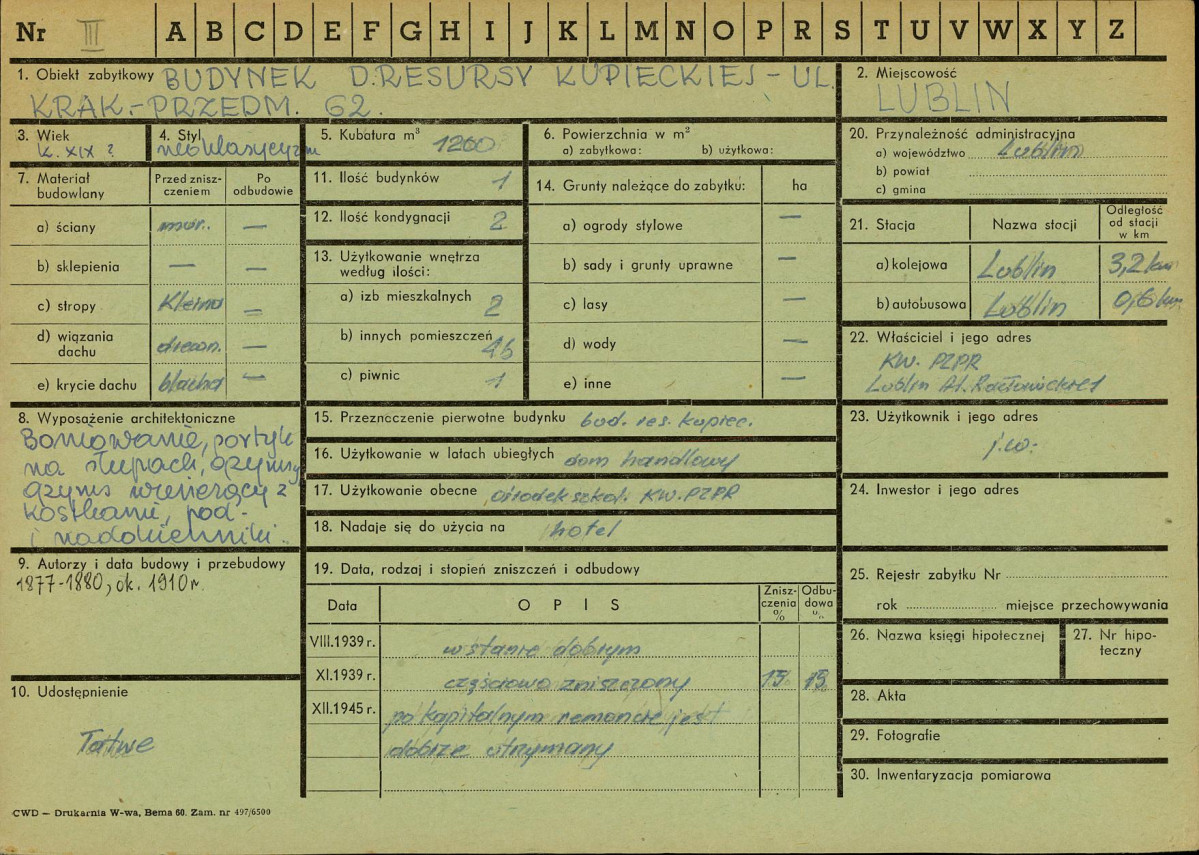 Nr III A B C D E F G H I J K L M N O P R S T U V W X Y Z
1. Obiekt zabytkowy BUDYNEK D.RESURSY KUPIECKIEJ - UL.
KRAK.-PRZEDM. 62.
2. Miejscowość
LUBLIN
3. Wiek
k. XIX ?
4. Styl
neoklasycyzm
5. Kubatura m³ 1200
6. Powierzchnia w m²
a) zabytkowa: b) użytkowa:
20. Przynależność administracyjna
a) województwo Lublin
b) powiat
c) gmina
7. Materiał budowlany
Przed zniszczeniem
Po odbudowie
a) ściany mur. —
b) sklepienia — —
c) stropy Kleina —
d) wiązania dachu drewn. —
e) krycie dachu blacha —
11. Ilość budynków 1
12. Ilość kondygnacji 2
13. Użytkowanie wnętrza
według ilości:
a) izb mieszkalnych 2
b) innych pomieszczeń
c) piwnic 1
14. Grunty należące do zabytku: ha
a) ogrody stylowe —
b) sady i grunty uprawne —
c) lasy —
d) wody —
e) inne —
21. Stacja Nazwa stacji Odległość od stacji w km
a) kolejowa Lublin 3,2 km
b) autobusowa Lublin 0,6 km
22. Właściciel i jego adres
KW. PZPR
Lublin Al. Racławickie 1
8. Wyposażenie architektoniczne
Boniowanie, portyk
na słupach, gzymsy
gzyms wieńczący z
kostkami, pod-
i nadokienniki.
15. Przeznaczenie pierwotne budynku bud. res. kupiec.
16. Użytkowanie w latach ubiegłych dom handlowy
17. Użytkowanie obecne ośrodek szkol. KW. PZPR
18. Nadaje się do użycia na hotel
23. Użytkownik i jego adres
j.w.
24. Inwestor i jego adres
9. Autorzy i data budowy i przebudowy
1877-1880, ok. 1910 r.
19. Data, rodzaj i stopień zniszczeń i odbudowy
Data OPIS Zniszczenia % Odbudowa %
VIII.1939 r. w stanie dobrym
XI.1939 r. częściowo zniszczony 15 15
XII.1945 r. po kapitalnym remoncie jest
dobrze utrzymany
25. Rejestr zabytku Nr
rok miejsce przechowywania
26. Nazwa księgi hipotecznej
27. Nr hipoteczny
28. Akta
29. Fotografie
30. Inwentaryzacja pomiarowa
10. Udostępnienie
Łatwe
CWD — Drukarnia W-wa, Bema 60. Zam. nr 497/6500